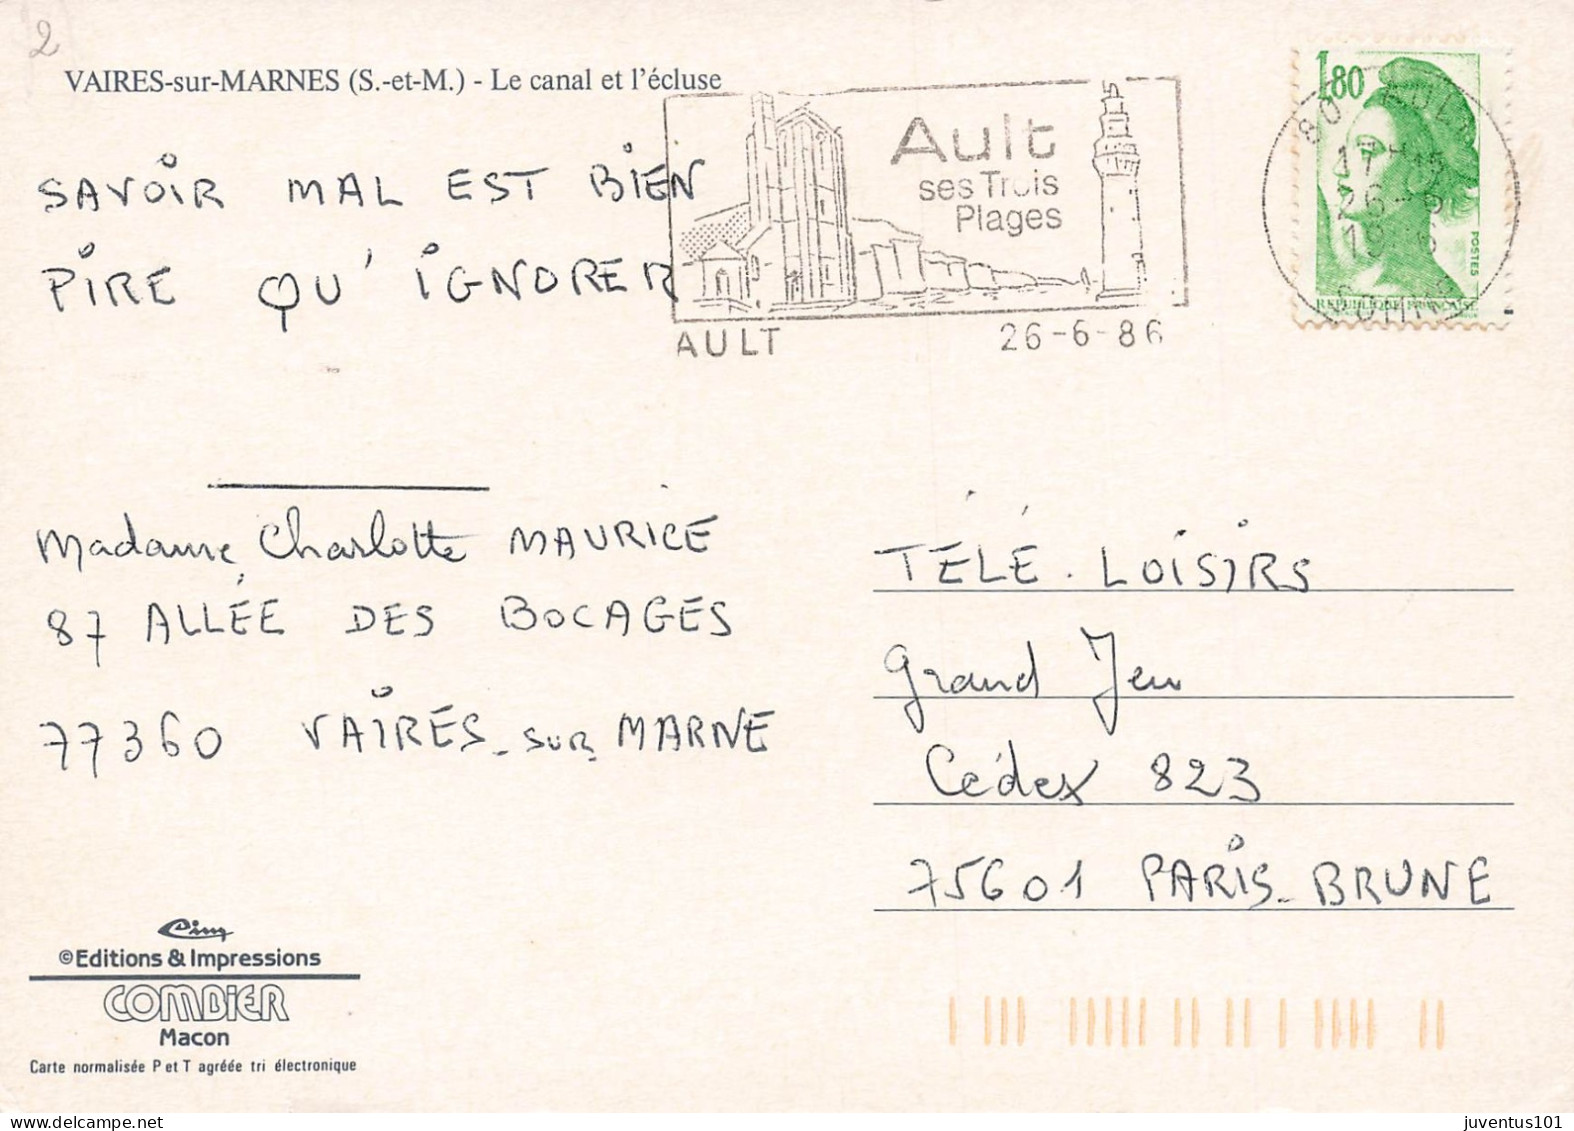 2
VAIRES-sur-MARNES (S.-et-M.) - Le canal et l'écluse
SAVOIR MAL EST BIEN
PIRE QU'IGNORER
Ault
ses Trois
Plages
AULT 26-6-86
1,80
POSTES
REPUBLIQUE FRANÇAISE
80 AULT
17H15
26-6
1986
SOMME
Madame Charlotte MAURICE
87 ALLÉE DES BOCAGES
77360 VAIRES-sur-MARNE
TÉLÉ. LOISIRS
Grand Jeu
Cédex 823
75601 PARIS-BRUNE
Cim
©Editions & Impressions
COMBIER
Macon
Carte normalisée P et T agréée tri électronique
juventus101